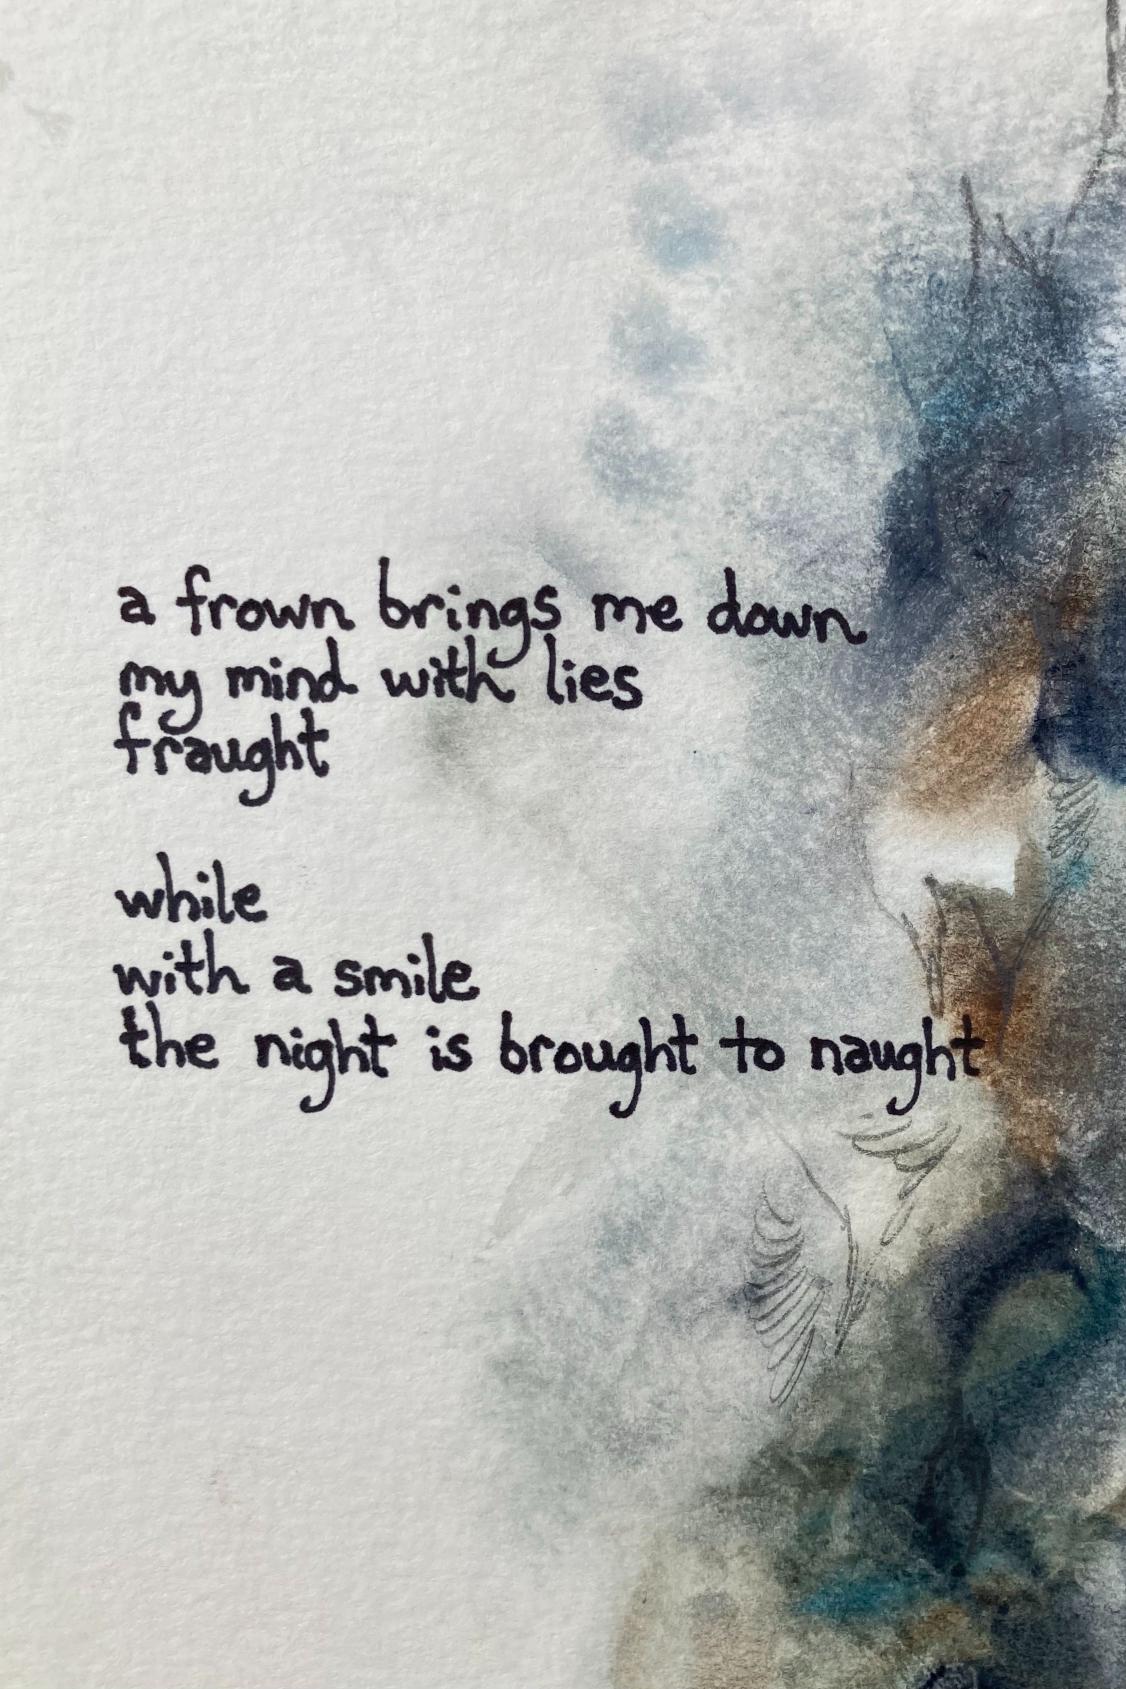 a frown brings me down
my mind with lies
fraught
while
with a smile
the night is brought to naught